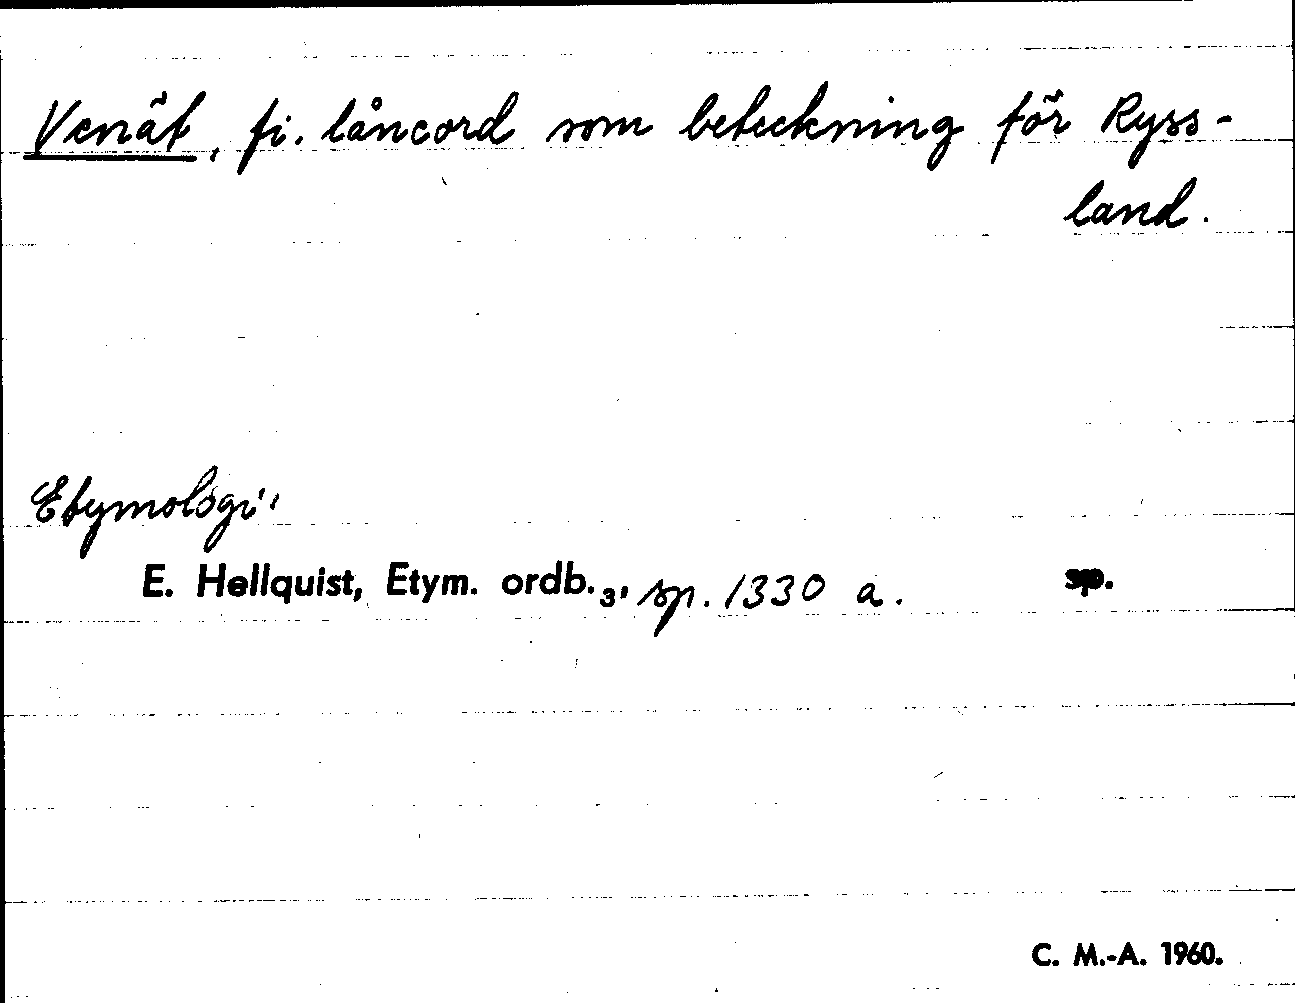 Venät, fi. låneord som beteckning för Ryss-
land.
Etymologi:
E. Hellquist, Etym. ordb.₃, sp. 1330 a. sp.
C. M.-A. 1960.